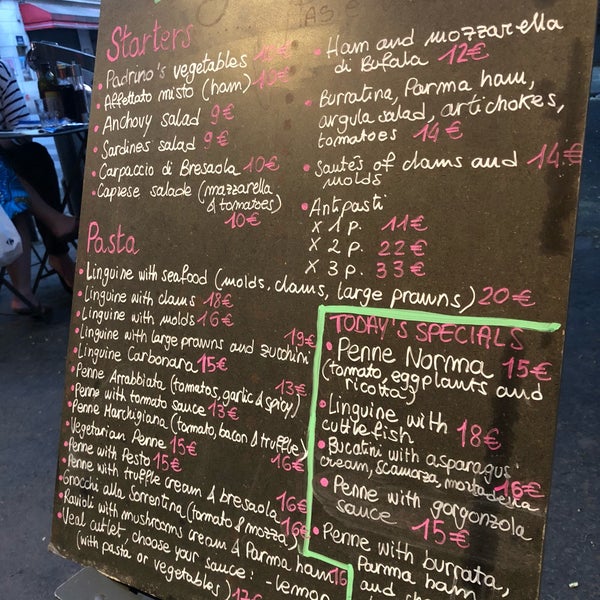 Starters
• Padrino's vegetables
• Affettato misto (ham)
• Anchovy salad 9€
• Sardines salad 9€
• Carpaccio di Bresaola 10€
• Capiese salade (mozzarella
& tomatoes)
10€
• Ham and mozzarella
di Bufala 12€
• Burratina, Parma ham,
argula salad, artichokes,
tomatoes 14€
• Sautés of clams and 14€
molds
• Antipasti
x 1 p. 11€
x 2 p. 22€
x 3 p. 33€
Pasta
• Linguine with seafood (molds, clams, large prawns) 20€
• Linguine with clams 18€
• Linguine with molds 16€
• Linguine with large prawns and zucchini 19€
• Linguine Carbonara 15€
• Penne Arrabbiata (tomatos, garlic & spicy) 13€
• Penne with tomato sauce 13€
• Penne Marchigiana (tomato, bacon & truffle) 16€
• Vegetarian Penne 15€
• Penne with Pesto 15€
• Penne with truffle cream & bresaola 16€
• Gnocchi alla Sorrentina (tomato & mozza) 16€
• Ravioli with mushrooms cream & Parma ham 16
• Veal cutlet, choose your sauce: - lemon
(with pasta or vegetables) 17€
TODAY'S SPECIALS
• Penne Norma 15€
(tomato, eggplants and
ricotta)
• Linguine with
cuttlefish 18€
• Bucatini with asparagus
cream, scamorza, mortadella 16€
• Penne with gorgonzola
sauce 15€
• Penne with burrata,
Parma ham
and